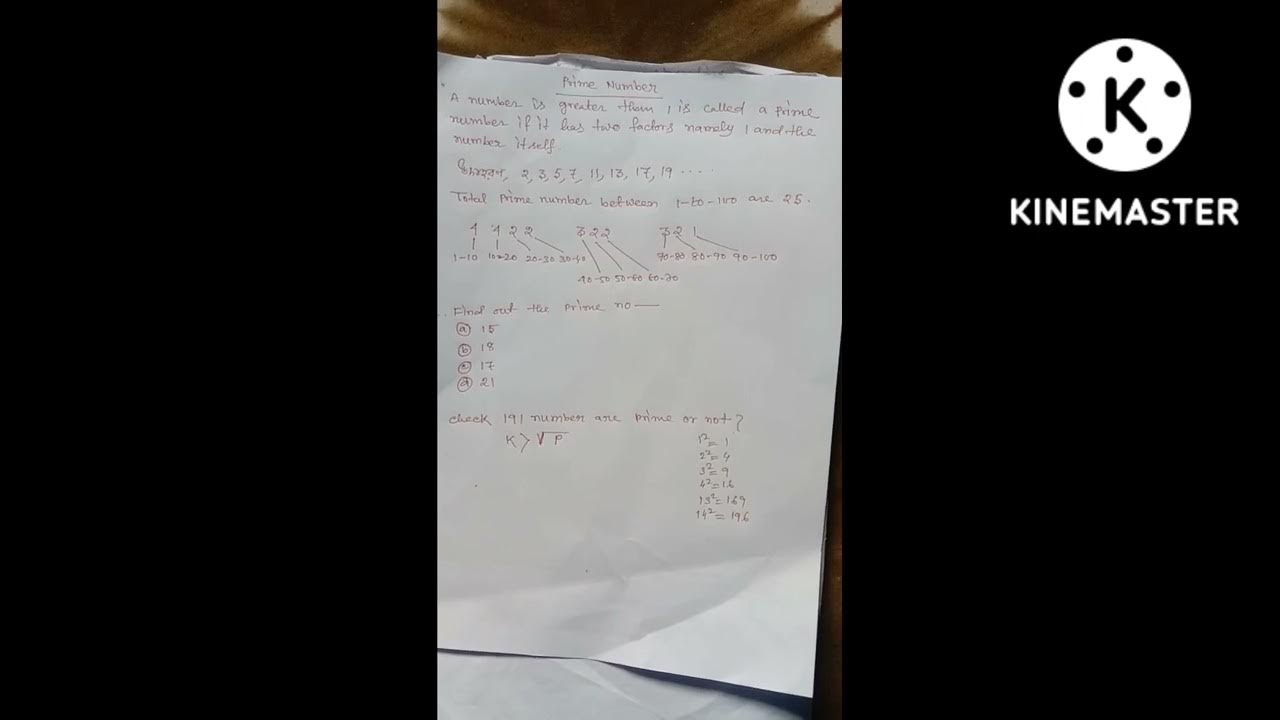 Prime Number
A number is greater than 1 is called a prime
number if it has two factors namely 1 and the
number itself.
উদাহরণ, 2, 3, 5, 7, 11, 13, 17, 19 ....
Total Prime number between 1-to-100 are 25.
4 4 2 2 3 2 2 3 2 1
1-10 10-20 20-30 30-40 70-80 80-90 90-100
40-50 50-60 60-70
Find out the prime no —
(a) 15
(b) 18
(c) 17
(d) 21
check 191 number are prime or not?
K > √P
1² = 1
2² = 4
3² = 9
4² = 16
13² = 169
14² = 196
K
KINEMASTER